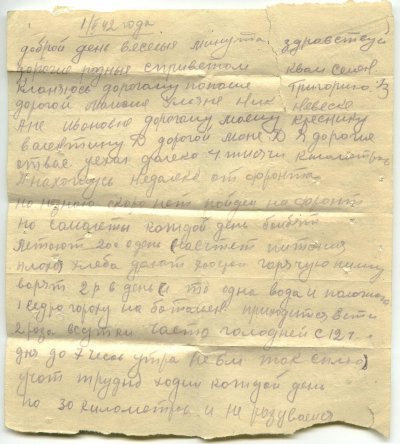 1/V 42 года.
доброй день веселые минута здравствуй
дорогие родные с приветом к вам Семен
Кланеюсь дорогому папаше Григорию
дорогой мамаше Ник невеске
Ане Ивановне дорогому моему креснику
валентину Д дорогой моне Д Я дорогие
уехал далеко 4 тисечи километров
Я нахожусь недалеко от фронта
но скоро нет пойдем на фронт
но самалеты каждой день бомбят
летают 200 в день насчет питания
плохо хлеба грам горячую пишу
варят 2 р в день и то одна вода и положено
1 ведро гороху на батален приходится ести
2 раза в сутки часто голодней с 12 г.
дня до 7 часов утра не ем так сплю
учат трудно ходим каждой день
по 30 километров и не разуваемся